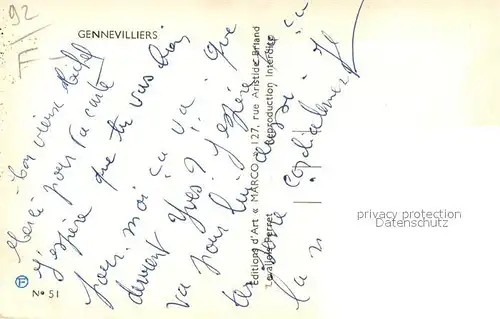 92
GENNEVILLIERS
Mon vieux Michel
Merci pour ta carte
J'espère que tu vas bien
pour moi ça va. que
devient Yves ? J'espère
va pour lui aussi
ça
Cordialement
Editions d'Art « MARCO » 127, rue Aristide Briand
Levallois-Perret Reproduction Interdite
N° 51
privacy protection
Datenschutz